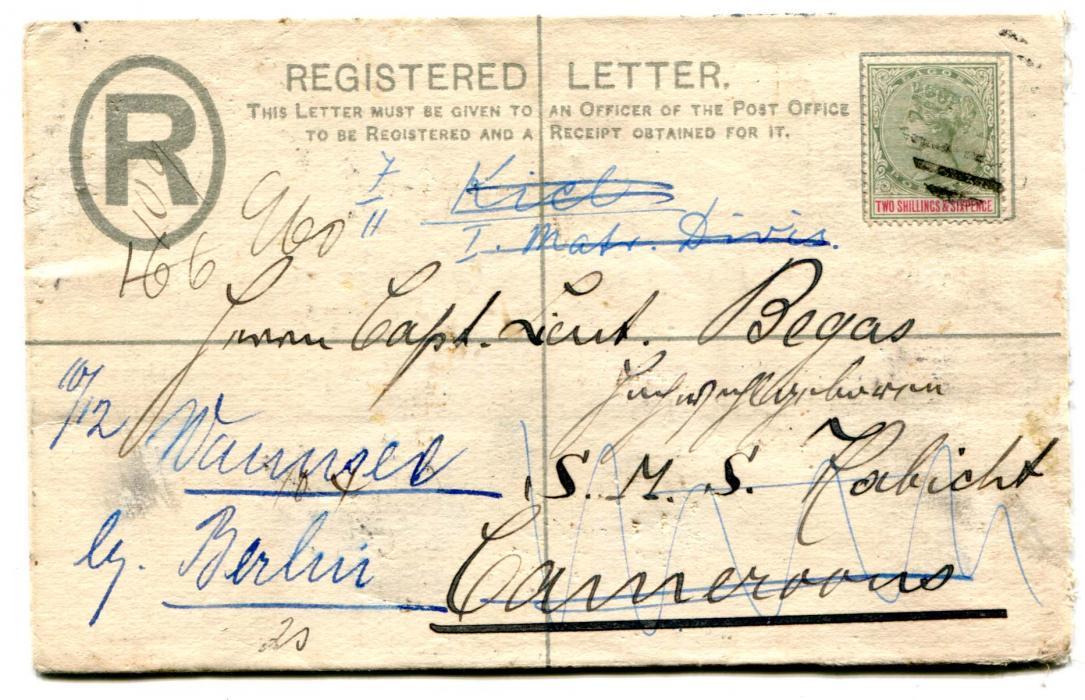 REGISTERED LETTER.
THIS LETTER MUST BE GIVEN TO AN OFFICER OF THE POST OFFICE
TO BE REGISTERED AND A RECEIPT OBTAINED FOR IT.
R
LAGOS
TWO SHILLINGS & SIXPENCE
166
960
7/11
Kiel
I. Matr. Divis.
Herrn Capt. Lieut. Begas
Hochwohlgeboren
10/12
Wannsee
S. M. S. Habicht
by. Berlin
Cameroons